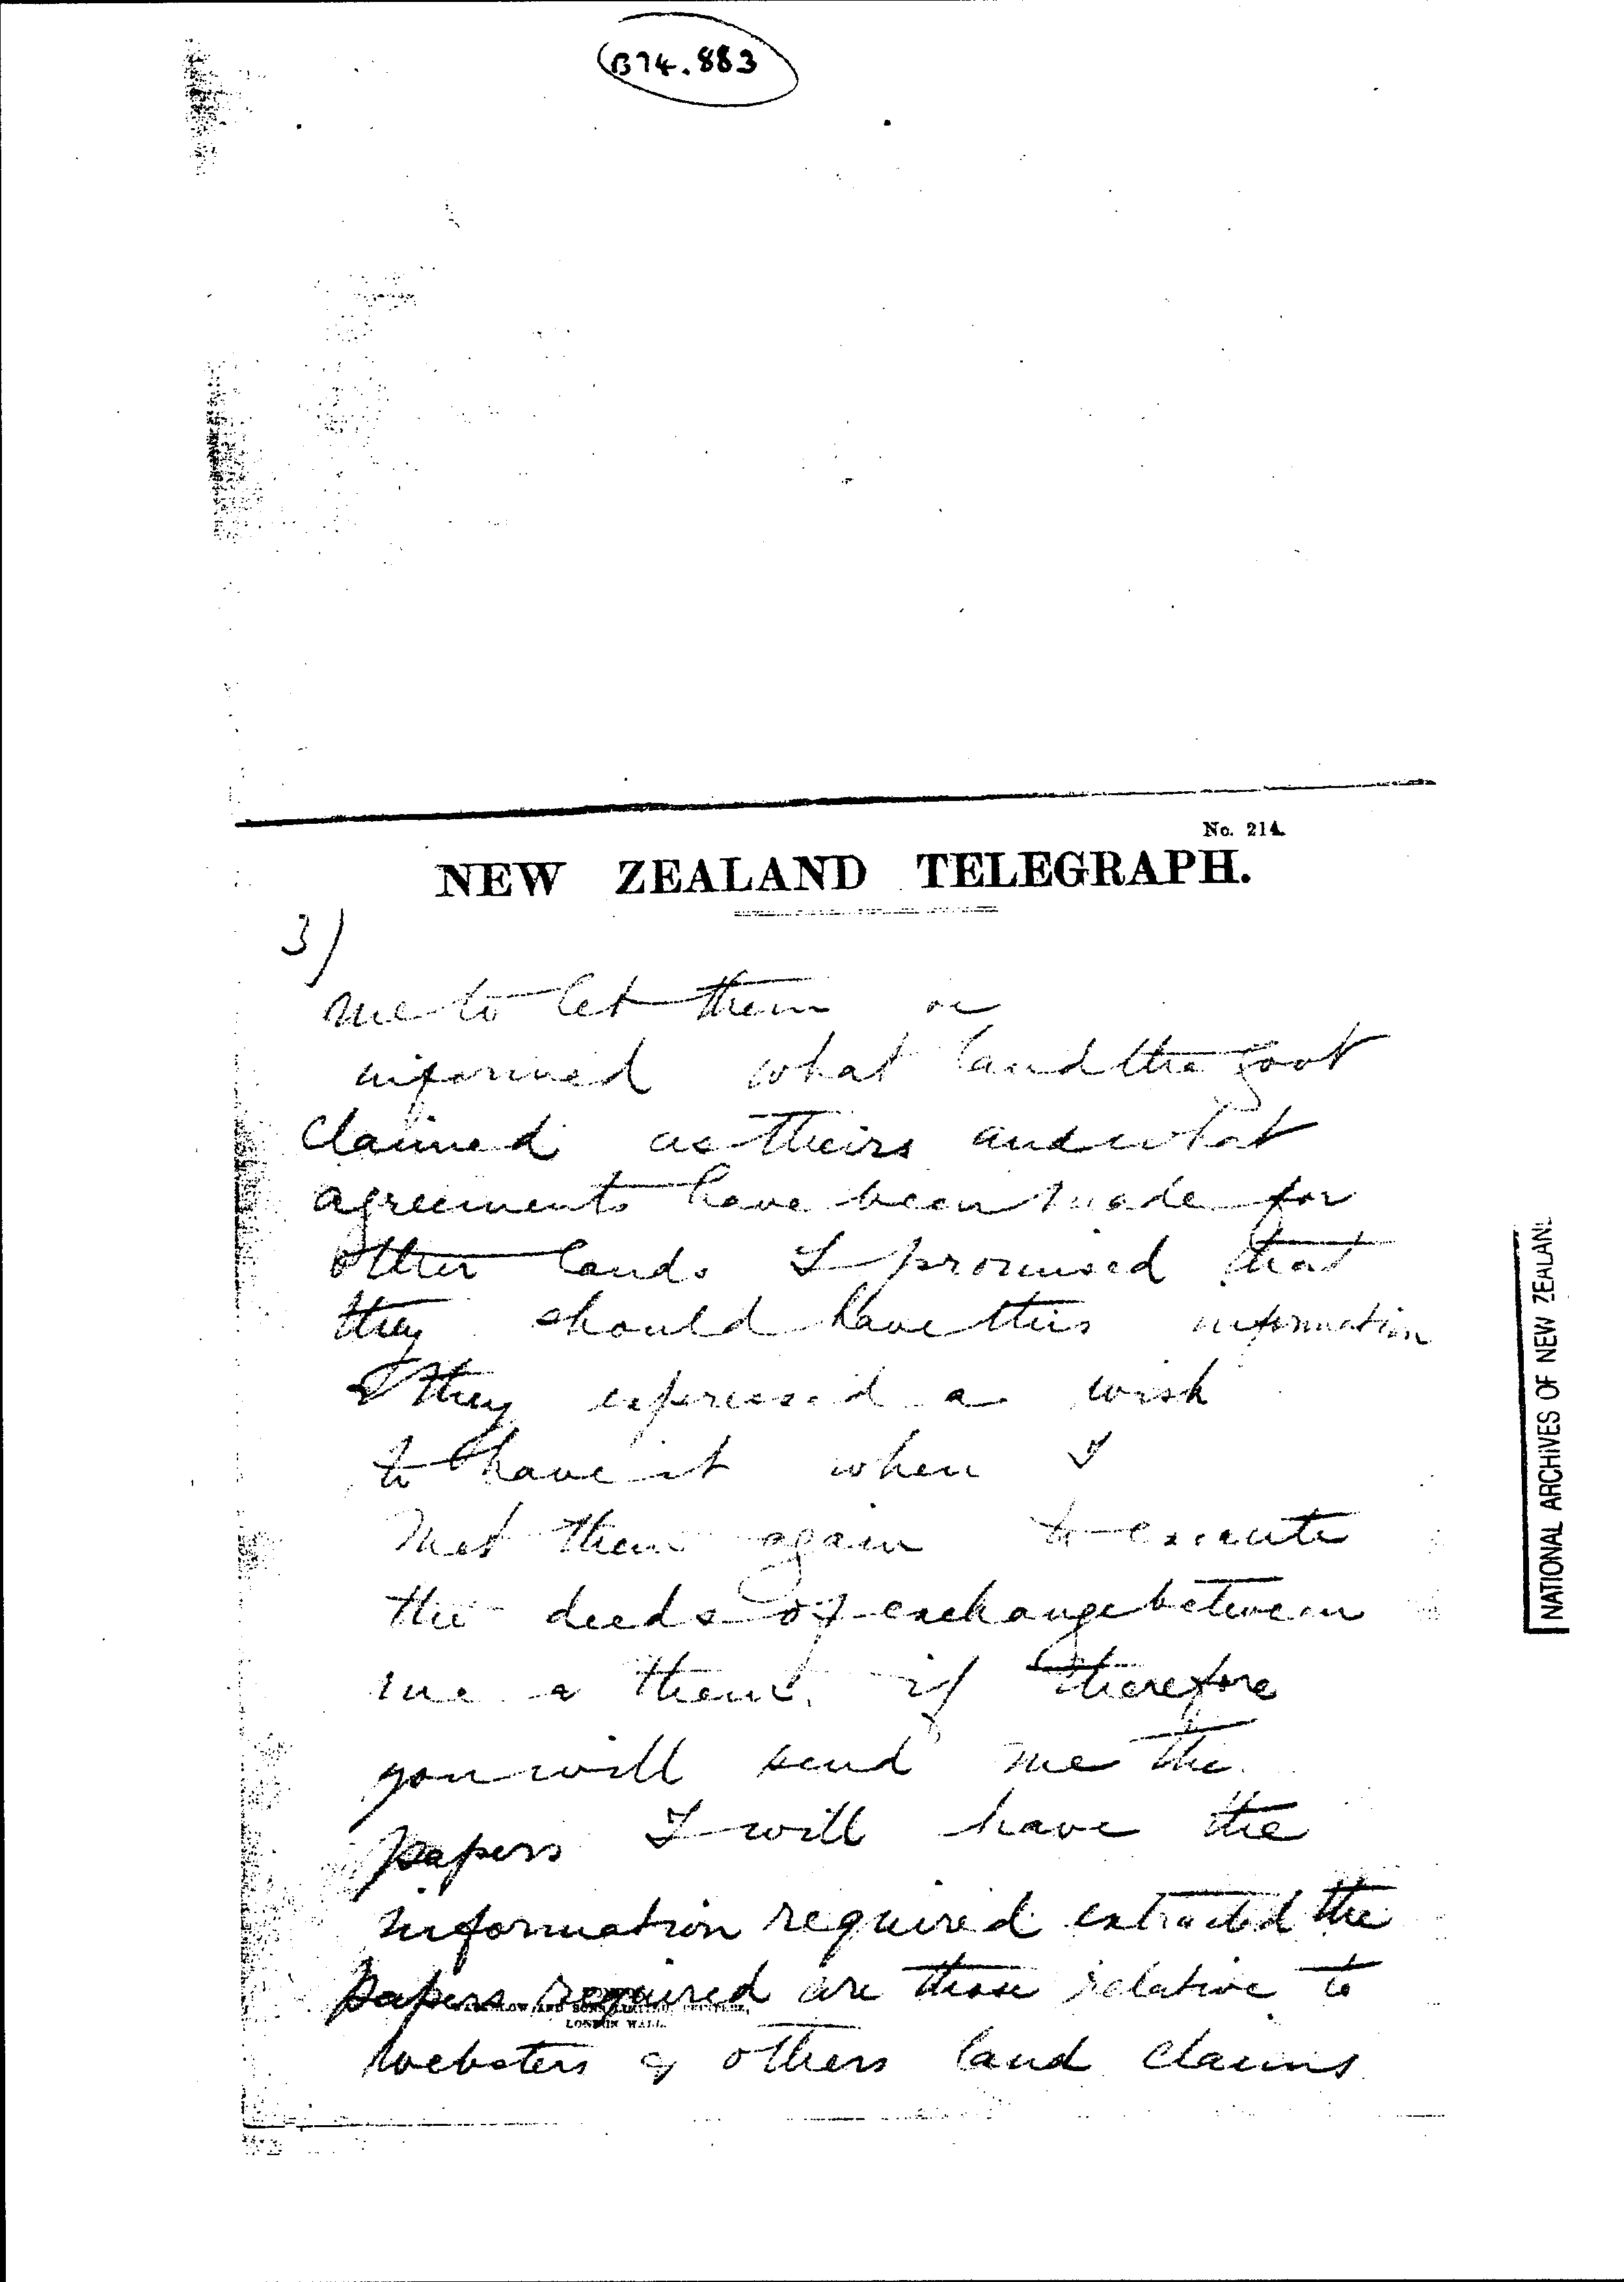 B74.883
No. 214.
NEW ZEALAND TELEGRAPH.
3)
me to let them
informed what land the Govt
claimed as theirs and what
agreements have been made for
other lands I promised that
they should have this information
& they expressed a wish
to have it when I
met them again to execute
the deeds of exchange between
me & them. if therefore
you will send me the
papers I will have the
information required extracted the
papers required are those relative to
Websters & others land claims
LONDON WALL.
NATIONAL ARCHIVES OF NEW ZEALAND